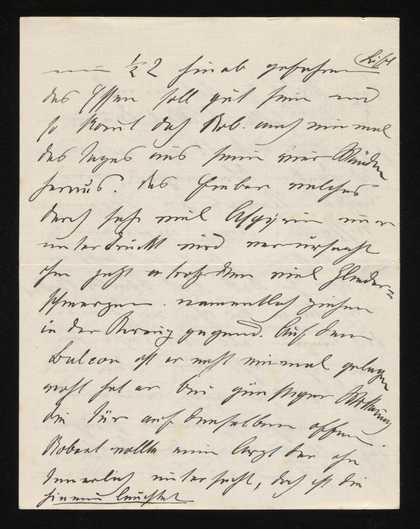 ½2 hinab gefahren
das Essen soll gut sein und
so kommt doch Rob. auch einmal
des Tages aus seinen vier Wänden
heraus. Das Fieber welches
durch sehr viel Aspirin immer
unterdrückt wird verursacht
ihm jetzt trotzdem viel Glieder-
schmerzen namentlich ziehen
in der Kreuzgegend. Auf dem
Balcon ist er nicht einmal gelegen
wohl hat er bei günstiger Witterung
die Tür auf denselben offen
Robert wollte einen Arzt der ihn
innerlich untersucht, doch ist die